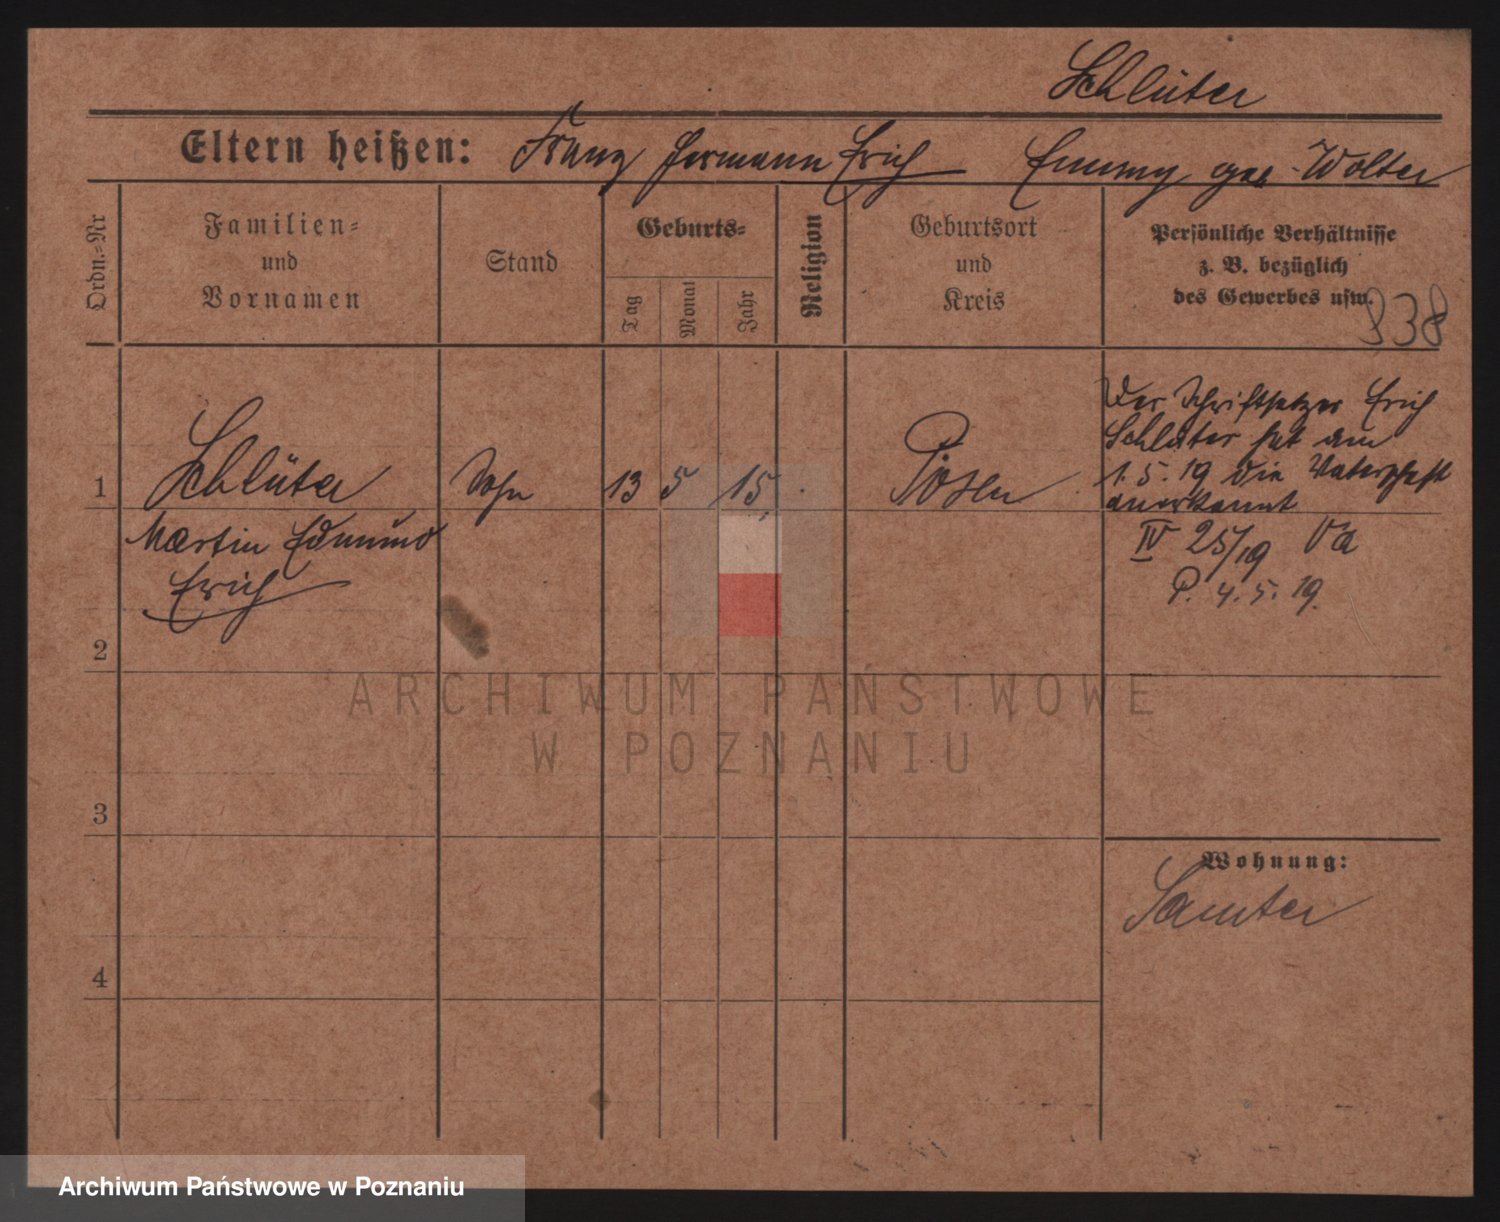 Schlüter
Eltern heißen: Franz Hermann Erich Emmy geb. Wolter
Ordn.-Nr
Familien-
und
Vornamen
Stand
Geburts-
Tag
Monat
Jahr
Religion
Geburtsort
und
Kreis
Persönliche Verhältnisse
z. B. bezüglich
des Gewerbes usw.
338
1
Schlüter
Martin Edmund
Erich
Sohn
13 5 15
Posen
Der Schriftsetzer Erich
Schlüter hat am
1. 5. 19 die Vaterschaft
anerkannt
IV 25/19 Va
P. 4. 5. 19.
2
3
4
Wohnung:
Samter
ARCHIWUM PAŃSTWOWE
W POZNANIU
Archiwum Państwowe w Poznaniu